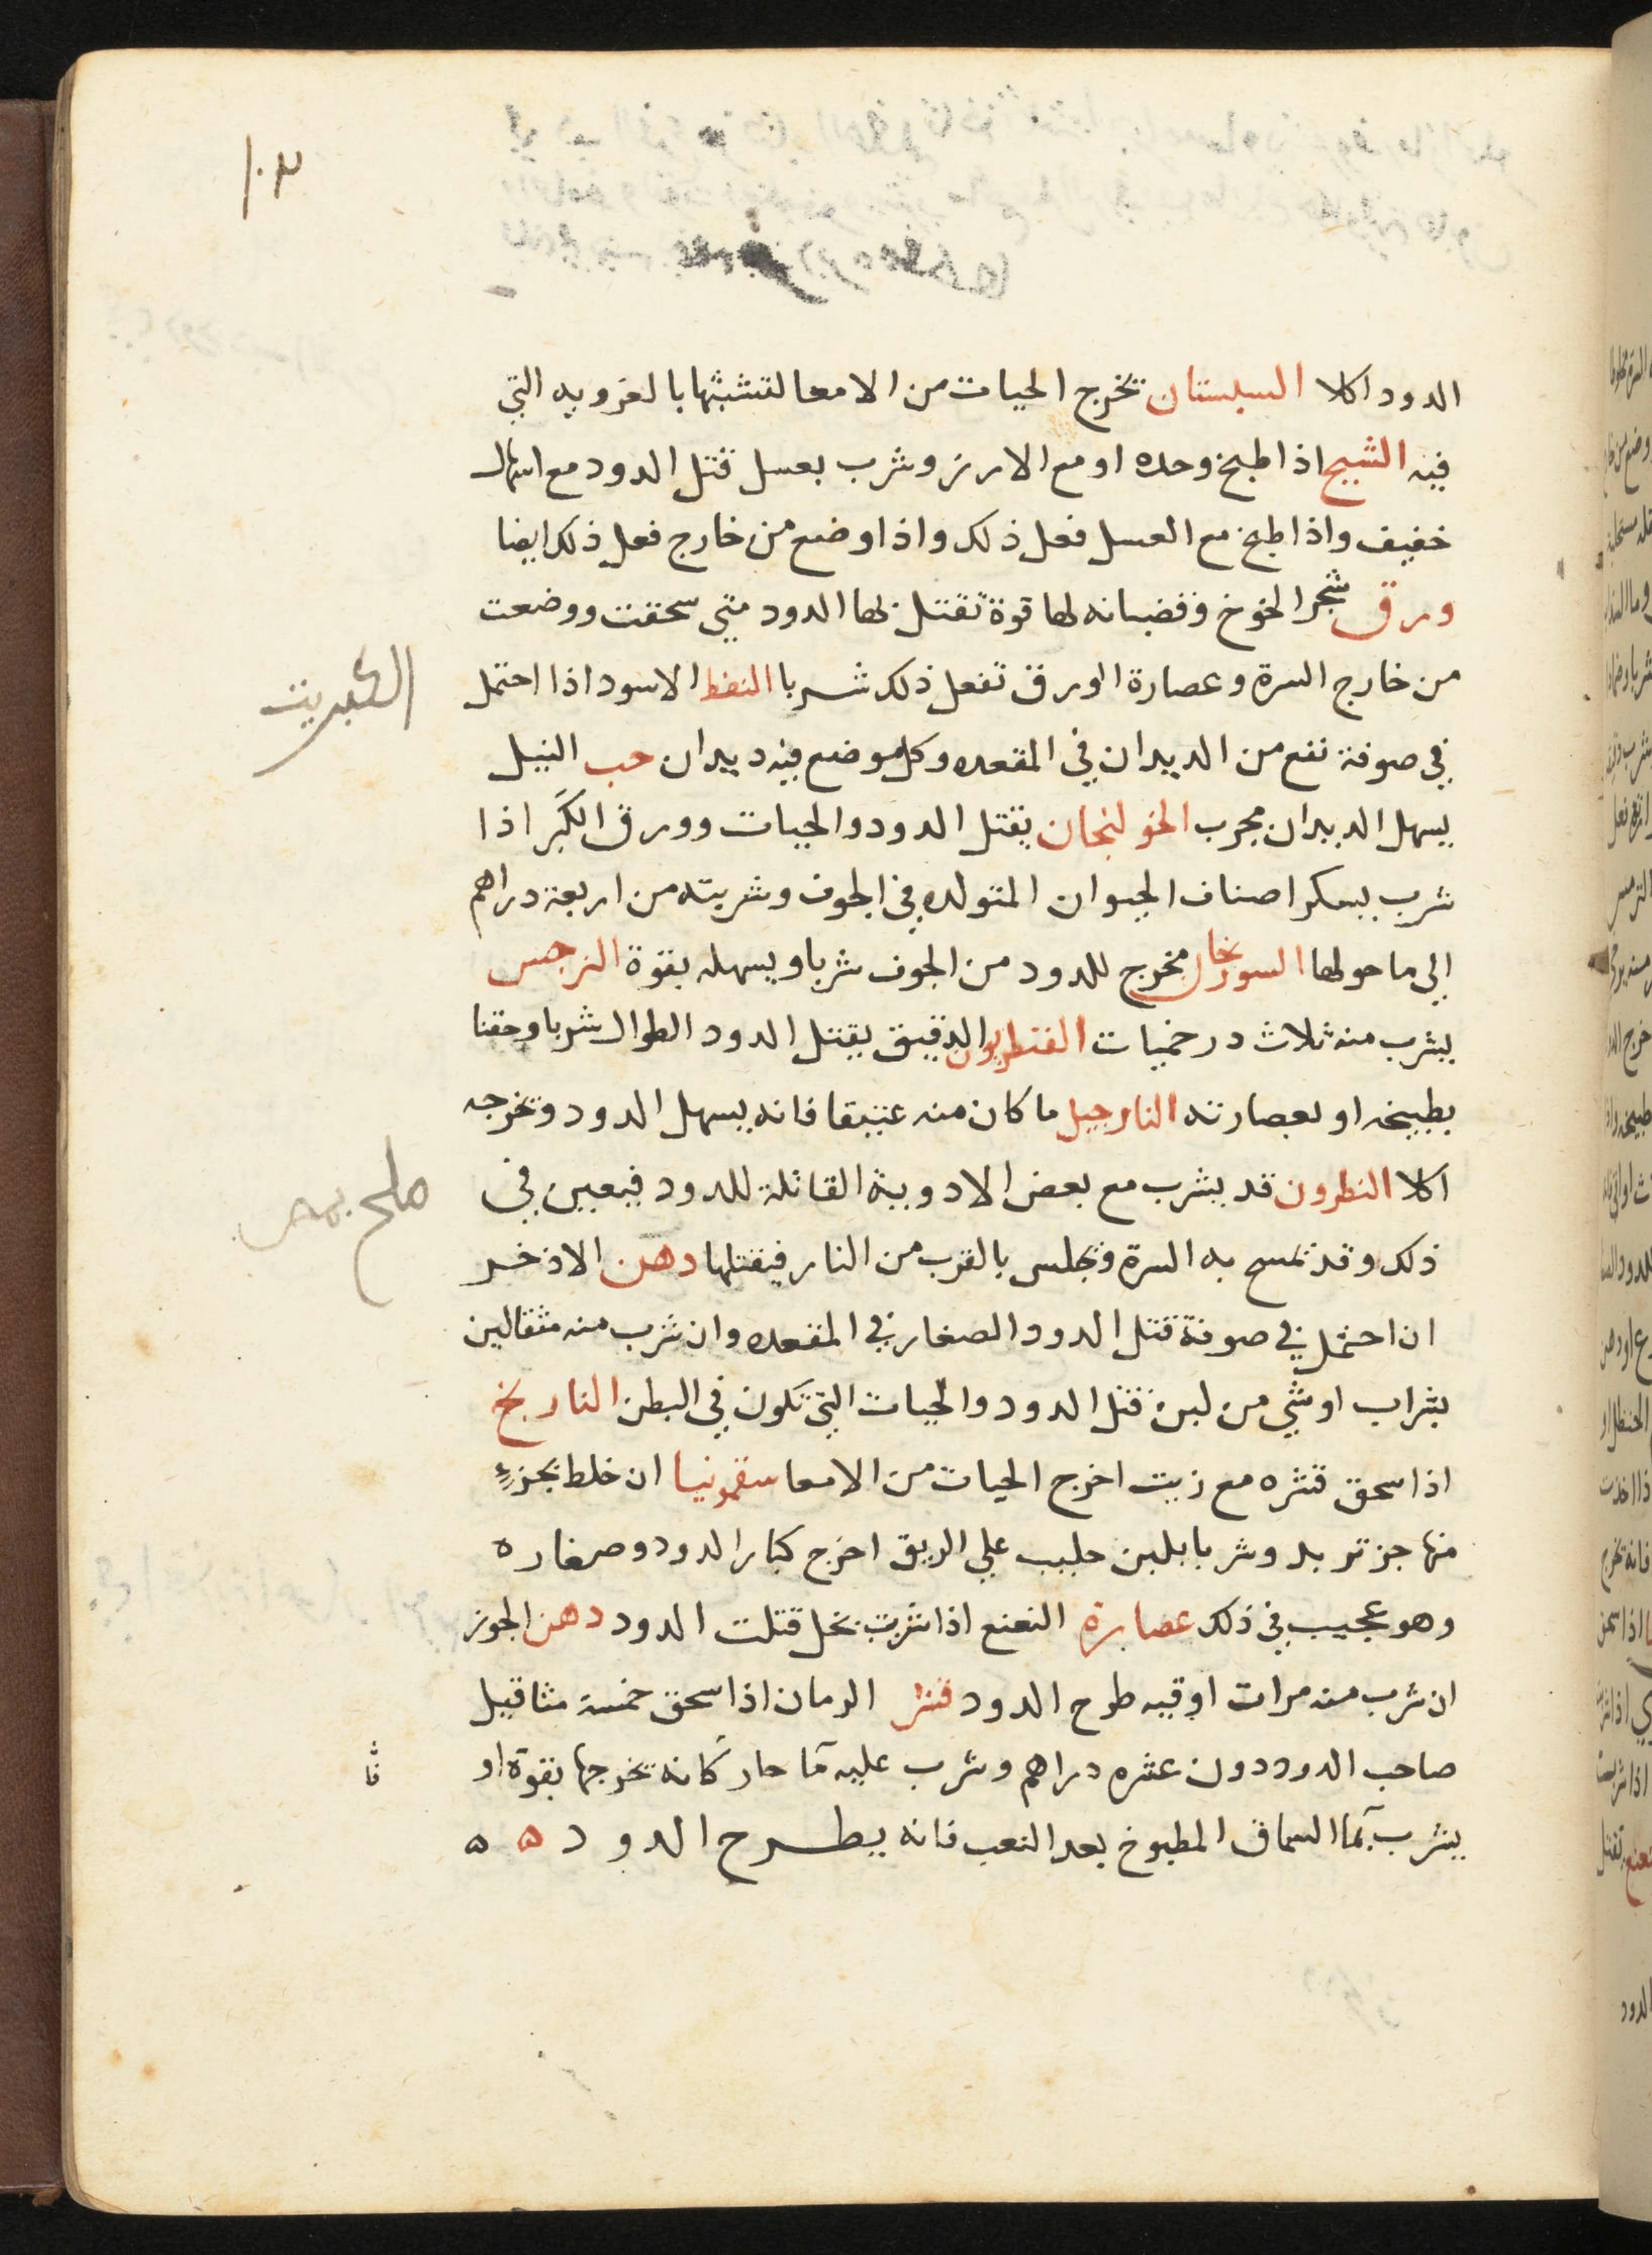 ١٠٣
الدود اكلا السبستان تخرج الحيات من الامعا لتشبثها بالغرويه التي
فيه الشيح اذا طبخ وحده او مع الارز وشرب بعسل قتل الدود مع اسهال
خفيف واذا طبخ مع العسل فعل ذلك واذا وضع من خارج فعل ذلك ايضا
ورق شجر الخوخ وقضبانه لها قوة تقتل بها الدود متي سحقت ووضعت
من خارج السرة وعصارة الورق تفعل ذلك شربا النفط الاسود اذا احتمل
الكبريت
في صوفة نفع من الديدان في المقعده وكل موضع فيه ديدان حب النيل
يسهل الديدان مجرب الخولنجان يقتل الدود والحيات وورق الكَبَر اذا
شرب بسكر اصناف الحيوان المتولده في الجوف وشربته من اربعة دراهم
الي ما حولها السورنجان مخرج للدود من الجوف شربا ويسهله بقوة النرجس
يشرب منه ثلاث درخميات القنطريون الدقيق يقتل الدود الطوال شربا وحقنا
بطبيخه او بعصارته النارجيل ما كان منه عتيقا فانه يسهل الدود وتخرجه
اكلا النطرون قد يشرب مع بعض الادوية القاتلة للدود فيعين في
ملح
ذلك وقد تمسح به السرة وتجلس بالقرب من النار فيقتلها دهن الاذخر
ان احتمل في صوفة قتل الدود الصغار في المقعده وان شرب منه مثقالين
بشراب او شي من لبن قتل الدود والحيات التي تكون في البطن النارنج
اذا سحق قشره مع زيت اخرج الحيات من الامعا سقمونيا ان خلط بجزءٍ
منها جز تربد وشربا بلبن حليب علي الريق اخرج كبار الدود وصغاره
وهو عجيب في ذلك عصارة النعنع اذا شربت بخل قتلت الدود دهن الجوز
ان شرب منه مرات اوقيه طرح الدود قشر الرمان اذا سحق خمسة مثاقيل
صاحب الدود دون عشره دراهم وشرب عليه مَا حار كانه تخرجها بقوة او
يشرب بما السماق المطبوخ بعد التعب فانه يطرح الدود ه ه